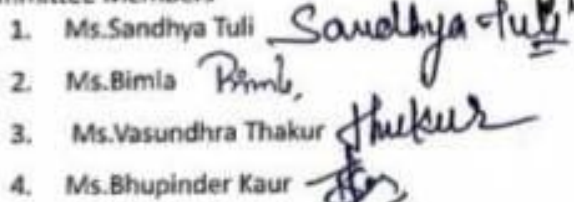 mmittee Members
1. Ms.Sandhya Tuli Sandhya Tuli
2. Ms.Bimla Bimla
3. Ms.Vasundhra Thakur Thukur
4. Ms.Bhupinder Kaur